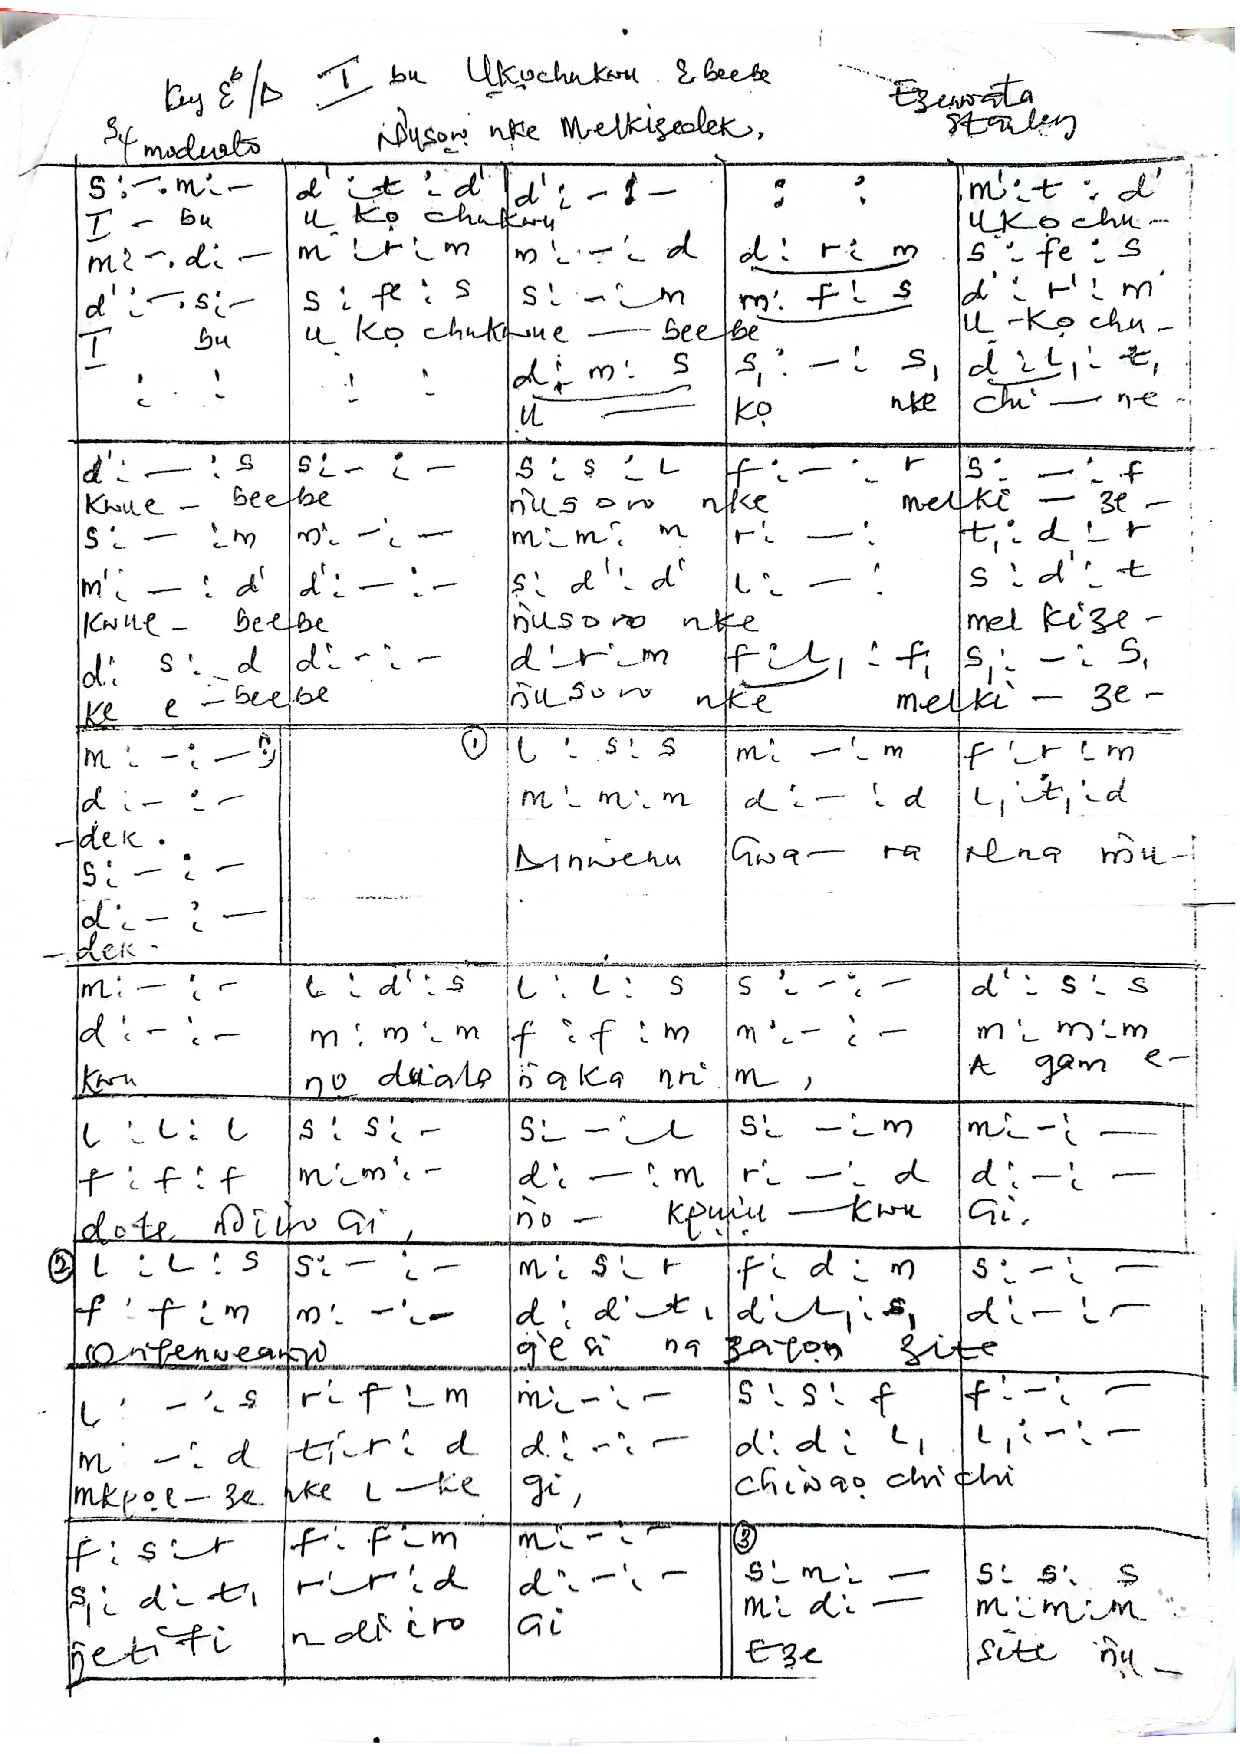 Key E♭/D I bu Ukọchukwu Ebeebe
Ezewata
Stanley
3/4 moderato Ñusoro nke Melkizedek.
s : - . m : - | d' : t : d' | d' : - : - | : : | m' : t : d'
I - bu | u kọ chukwu | | | U kọ chu -
m : - . d : - | m : r : m | m : - : d | d : r : m | s : fe : s
d' : - . s : - | s : fe : s | s : - : m | m : f : s | d' : r' : m'
I bu | u kọ chukwue — beebe | U - kọ chu -
: : | : : | d : m : s | s, : - : s, | d : l, : t,
u — | kọ nke | chi — ne -
d' : — : s | s : - : - | s : s : l | f : - : r | s : — : f
kwue - beebe | ñusoro nke | melki — ze -
s : — : m | m : - : — | m : m : m | r : — : | t, : d : r
m' : — : d' | d' : — : - | s : d' : d' | l : — : | s : d' : t
kwue - beebe | ñusoro nke | mel kize -
d : s : d | d : - : - | d : r : m | f : l, : f, | s, : - : s,
ke e - beebe | ñusoro nke | melki — ze -
m : - : — | ① | l : s : s | m : — : m | f : r : m
d : - : - | m : m : m | d : — : d | l, : t, : d
- dek. | Dinwenu | Gwa — ra | Nna mu -
s : - : —
d : - : —
- dek.
m : — : - | l : d' : s | l : l : s | s : - : - | d' : s : s
d : - : - | m : m : m | f : f : m | m : - : - | m : m : m
kwu | no duala | n̄aka nri m, | A gam e -
l : l : l | s : s : - | s : - : l | s : - : m | m : - : —
f : f : f | m : m : - | d : — : m | r : — : d | d : - : —
dote Ndiiro Gi, | n̄o - kpụụ — kwu Gi.
② l : l : s | s : — : - | m : s : r | f : d : m | s : - : —
f : f : m | m : - : - | d : d : t, | d : l, : s, | d : - : —
gesi na zayọn zite
l : - : s | r : f : m | m : - : - | s : s : f | f : - : —
m : - : d | t, : r : d | d : - : — | d : d : l, | l, : - : -
mkpọe - ze nke i - ke gi, | chiwaọ chichi
f : s : r | f : f : m | m : - : - | ③ s : m : — | s : s : s
s, : d : t, | r : r : d | d : - : - | m : d : — | m : m : m
n̄etiti ndiiro Gi | Eze | site n̄u -